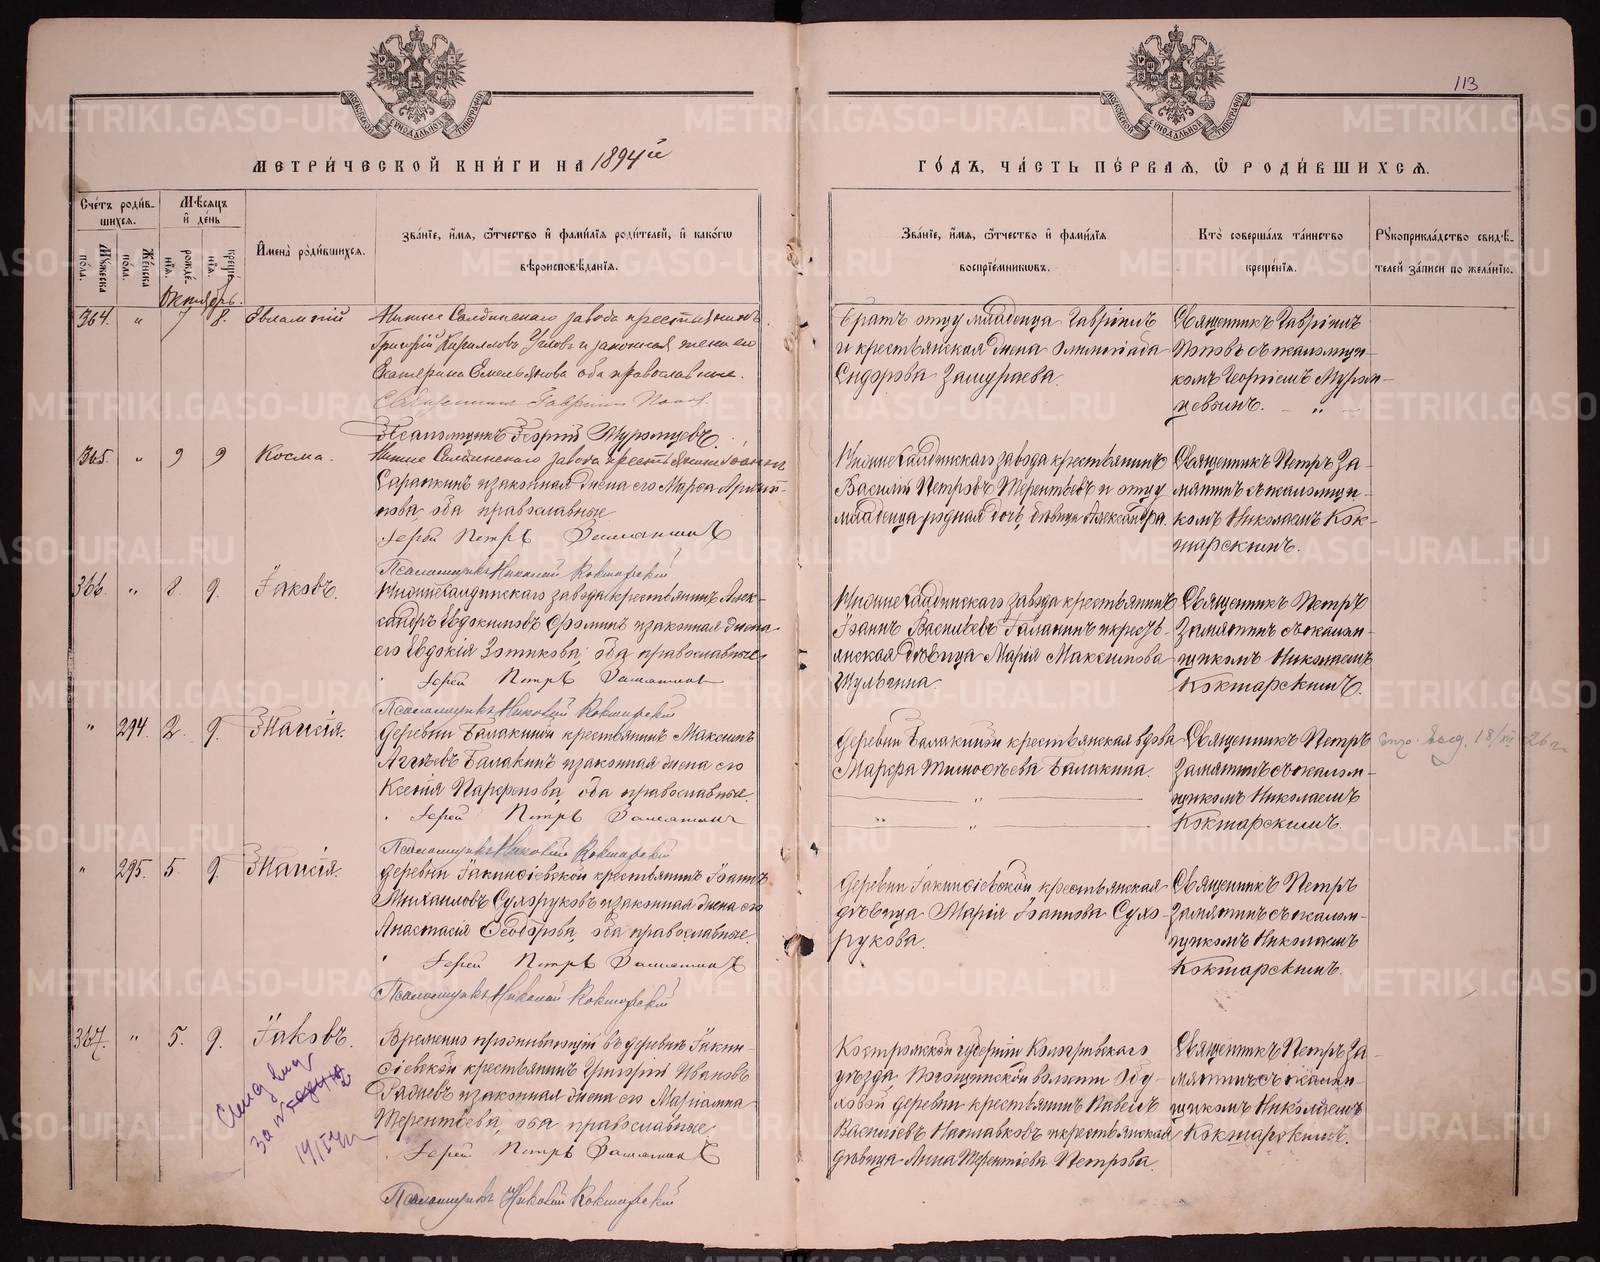 113
МЕТРИ́ЧЕСКОЙ КНИ́ГИ НА 1894й
ГО́ДЪ, ЧА́СТЬ ПЕ́РВАЯ, Ѡ РОДИ́ВШИХСЯ.
Сче́тъ роди́в-
шихся.
Мѣсяцъ
и҆ де́нь
Мꙋжеска по́ла.
Же́нска по́ла.
рожде́-
нїѧ.
креще́-
нїѧ.
И҆мена̀ роди́вшихся.
Зва́нїе, и҆́мя, ѻ҆́тчество и҆ фами́лїя роди́телей, и҆ како́гѡ
вѣроисповѣ́данїя.
Зва́нїе, и҆́мя, ѻ҆́тчество и҆ фами́лїя
воспрїе́мниковъ.
Кто̀ соверша́лъ та́инство
креще́нїя.
Рꙋкоприкла́дство свидѣ́-
телей за́писи по жела́нїю.
Октябрь.
364. " 7 8. Евлампій
Нижне Салдинскаго завода крестьянинъ
Григорій Кириловъ Угловъ и законная жена его
Екатерина Емельянова оба православные.
Священникъ Гавріилъ Поповъ.
Псаломщикъ Георгій Муромцевъ.
Братъ отцу младенца Гавріилъ
и крестьянская жена Олимпіада
Сидорова Замураева.
Священникъ Гавріилъ
Поповъ съ псаломщи-
комъ Георгіемъ Муром-
цевымъ. — " —
365. " 9 9 Косма.
Нижне Салдинскаго завода крестьянинъ Іоаннъ
Сарапкинъ и законная жена его Марѳа Архип-
пова, оба православные
Іерей Петръ Замятинъ
Псаломщикъ Николай Кокшарскій
Нижнесалдинскаго завода крестьянинъ
Василій Петровъ Терентьевъ и отцу
младенца родная дочь, дѣвица Александра.
Священникъ Петръ За-
мятинъ съ псаломщи-
комъ Николаемъ Кок-
шарскимъ.
366. " 8. 9. Іаковъ.
Нижнесалдинскаго завода крестьянинъ Алек-
сандръ Евдокимовъ Ѳоминъ и законная жена
его Евдокія Зотикова, оба православные.
Іерей Петръ Замятинъ
Псаломщикъ Николай Кокшарскій
Нижнесалдинскаго завода крестьянинъ
Іоаннъ Васильевъ Галанинъ и кресть-
янская дѣвица Марія Максимова
Шульгина.
Священникъ Петръ
Замятинъ съ псалом-
щикомъ Николаемъ
Кокшарскимъ.
" 294. 2. 9. Таисія.
Деревни Балакиной крестьянинъ Максимъ
Аггѣевъ Балакинъ и законная жена его
Ксенія Парѳенова, оба православные.
Іерей Петръ Замятинъ
Псаломщикъ Николай Кокшарскій
Деревни Балакиной крестьянская вдова
Марѳа Тимоѳеева Балакина.
Священникъ Петръ
Замятинъ съ псалом-
щикомъ Николаемъ
Кокшарскимъ.
18/XII 26 г.
" 295. 5. 9. Таисія.
Деревни Іакинѳіевской крестьянинъ Іоаннъ
Михаиловъ Сухоруковъ и законная жена его
Анастасія Ѳеодорова, оба православные.
Іерей Петръ Замятинъ
Псаломщикъ Николай Кокшарскій
Деревни Іакинѳіевской крестьянская
дѣвица Марія Іоаннова Сухо-
рукова.
Священникъ Петръ
Замятинъ съ псалом-
щикомъ Николаемъ
Кокшарскимъ.
367. " 5. 9. Іаковъ.
Временно проживающій въ деревнѣ Іакин-
ѳіевской крестьянинъ Григорій Ивановъ
и законная жена его Маріамна
Терентьева, оба православные.
Іерей Петръ Замятинъ
Псаломщикъ Николай Кокшарскій
Костромской губерніи Кологривскаго
уѣзда, волости Обу-
ховой деревни крестьянинъ Павелъ
Васильевъ Наставковъ и крестьянская
дѣвица Анна Терентіева Петрова.
Священникъ Петръ За-
мятинъ съ псалом-
щикомъ Николаемъ
Кокшарскимъ.